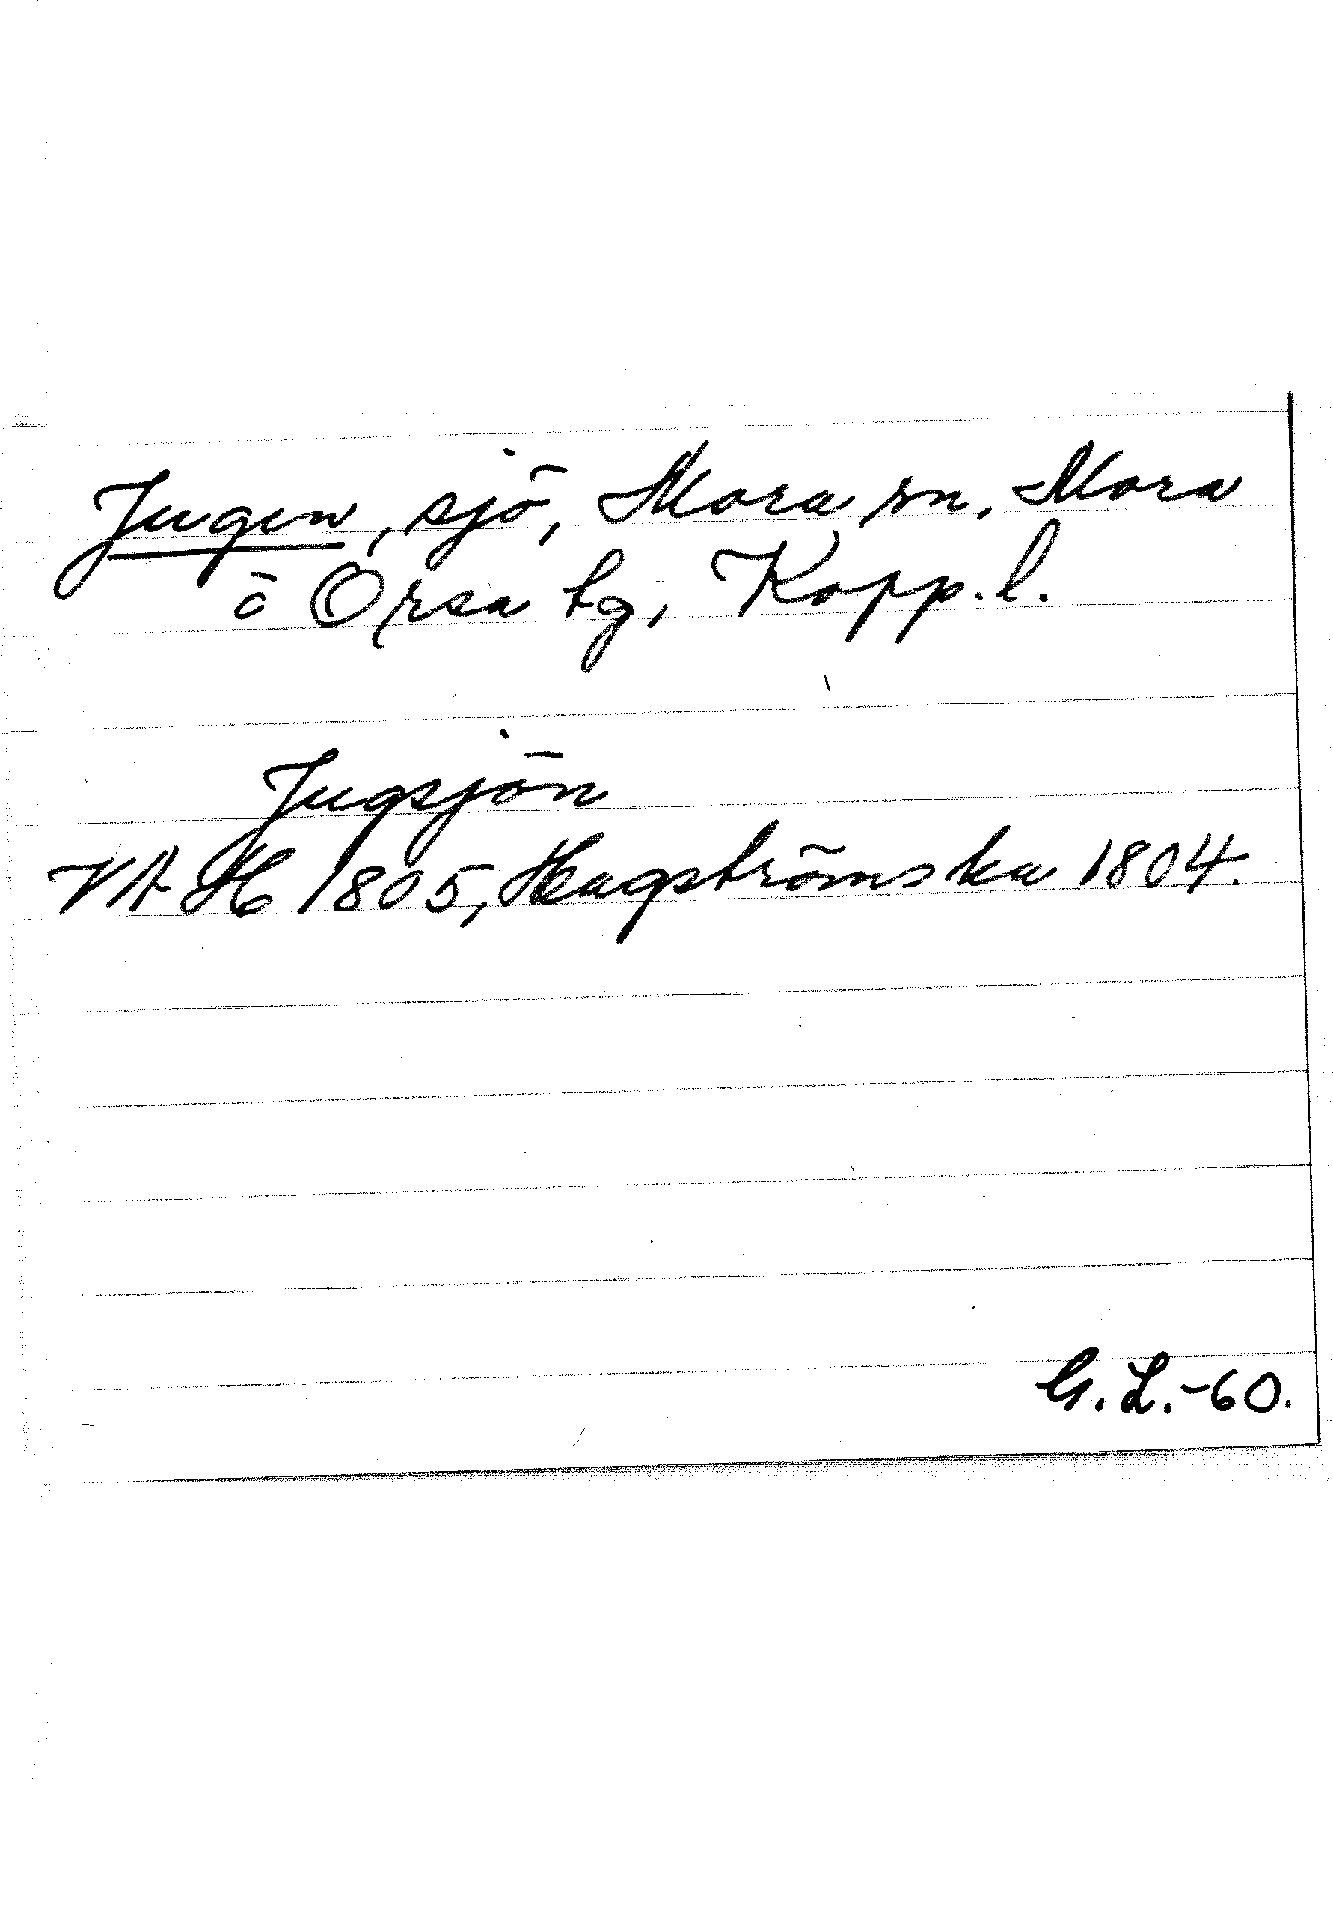 Jugen, sjö, Mora sn, Mora
ö Orsa tg, Kopp. l.
Jugsjön
VAH 1805, Hagströmska 1804.
G. L.-60.